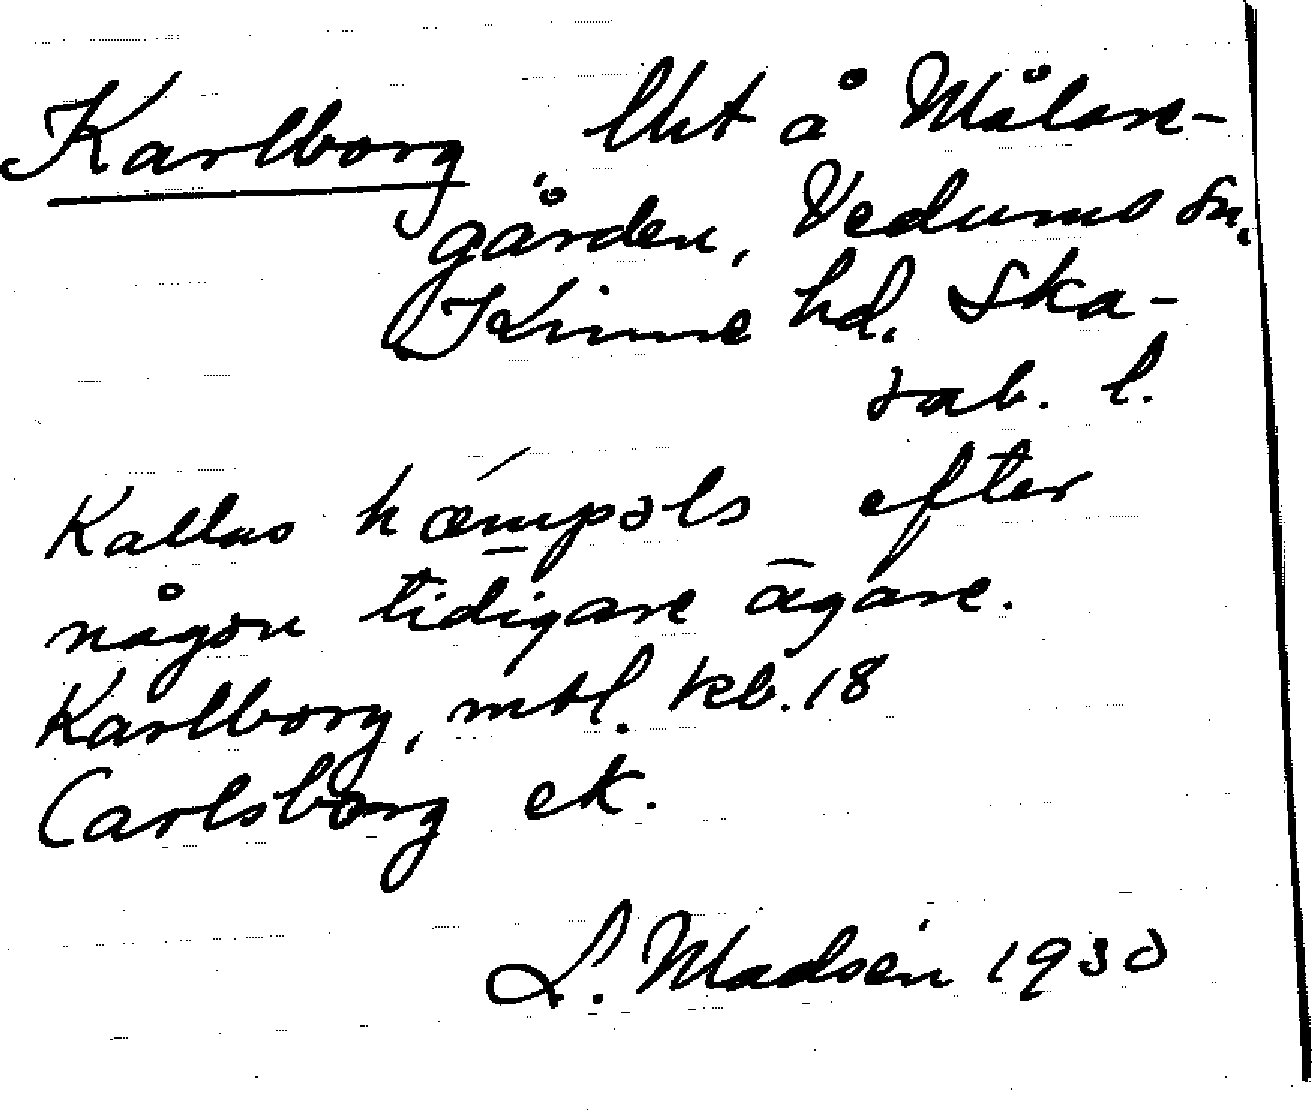 Karlborg lht å Målare-
gården, Vedums sn.
Kinne hd. Ska-
rab. l.
Kallas kæmpəls efter
någon tidigare ägare.
Karlborg, mtl. kb. 18
Carlsborg ek.
L. Madsén 1930